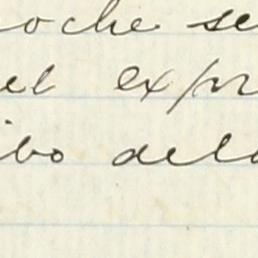 oche se
el expr
ibo dela